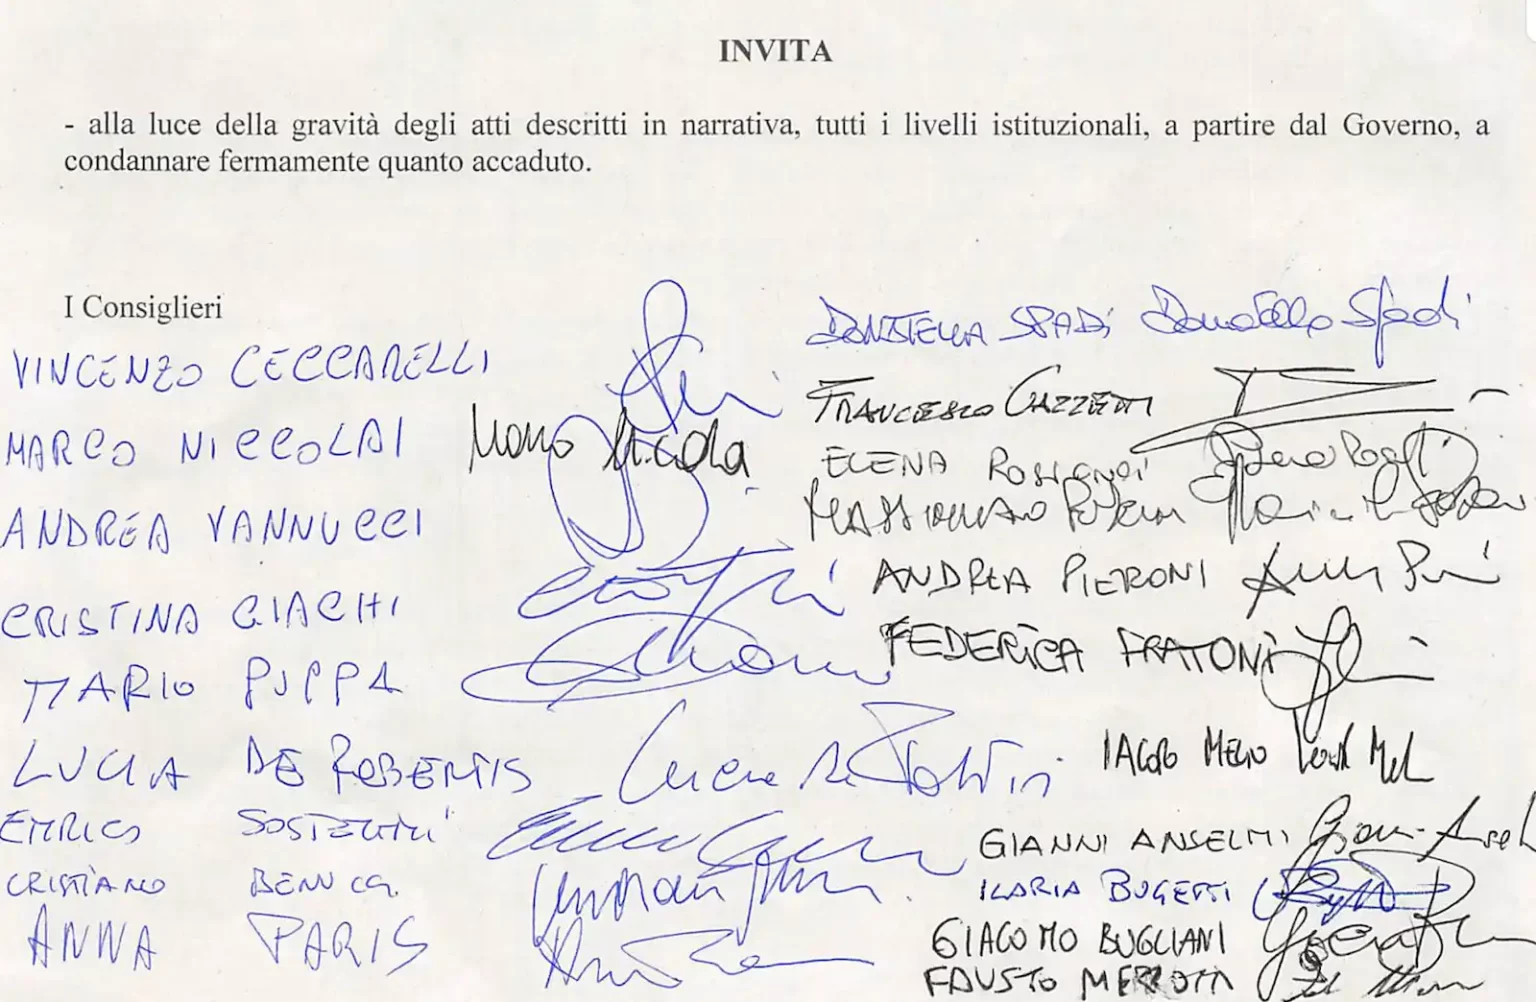 INVITA
- alla luce della gravità degli atti descritti in narrativa, tutti i livelli istituzionali, a partire dal Governo, a
condannare fermamente quanto accaduto.
I Consiglieri
VINCENZO CECCARELLI
MARCO NICCOLAI
ANDREA VANNUCCI
CRISTINA GIACHI
MARIO PUPPA
LUCIA DE ROBERTIS Lucia De Robertis
ENRICO SOSTEGNI
CRISTIANO BENUCCI
ANNA PARIS
DONATELLA SPADI Donatella Spadi
FRANCESCO GAZZETTI
ELENA ROSIGNOLI
MASSIMILIANO
ANDREA PIERONI
FEDERICA FRATONI
IACOPO MELIO
GIANNI ANSELMI
ILARIA BUGETTI
GIACOMO BUGLIANI
FAUSTO MERLOTTI